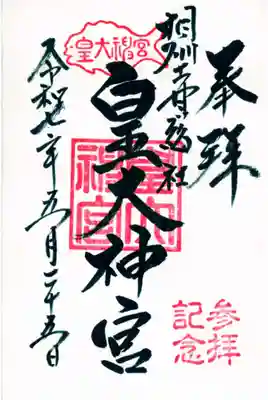 奉拝
相州土甘郷総社
皇大神宮
令和七年五月二十五日
皇大神宮
皇大神宮
参拝
記念